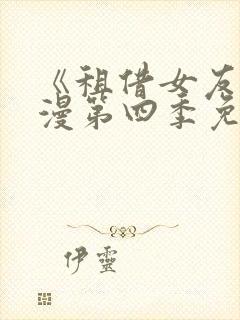 《租借女友
漫第四季免
伊靈